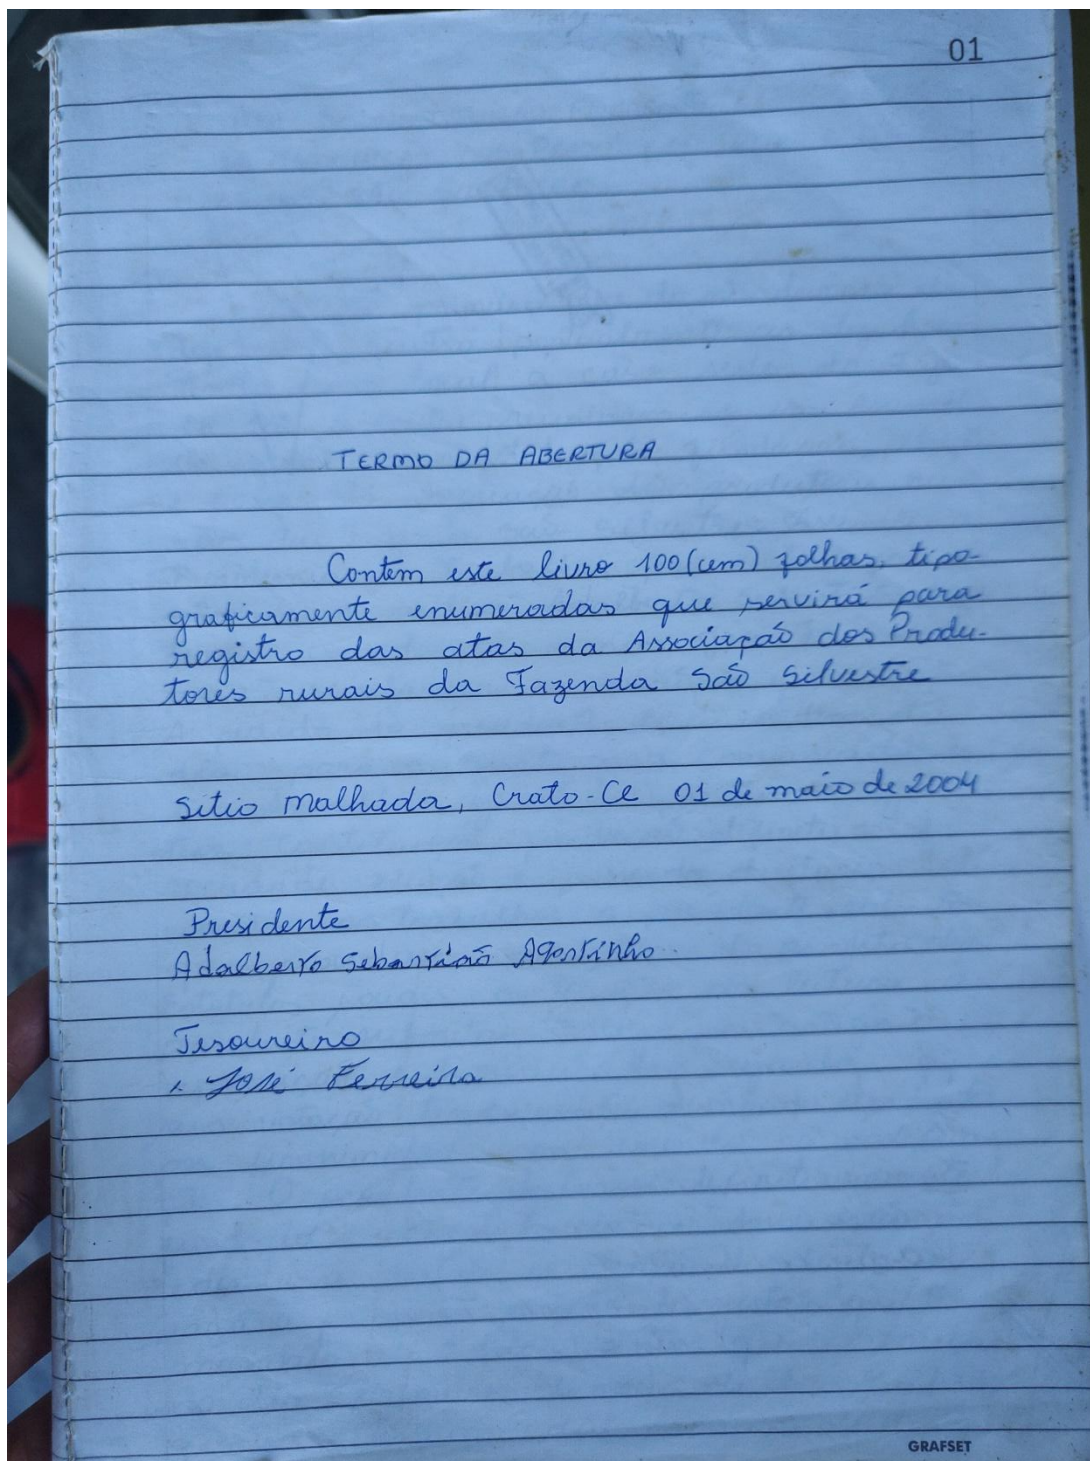 01
TERMO DA ABERTURA
Contém este livro 100 (cem) folhas, tipo-
graficamente enumeradas que servirá para
registro das atas da Associação dos Produ-
tores rurais da Fazenda São Silvestre
Sitio Malhada, Crato-Ce 01 de maio de 2004
Presidente
Adalberto Sebastião Agostinho.
Tesoureiro
José Ferreira
GRAFSET